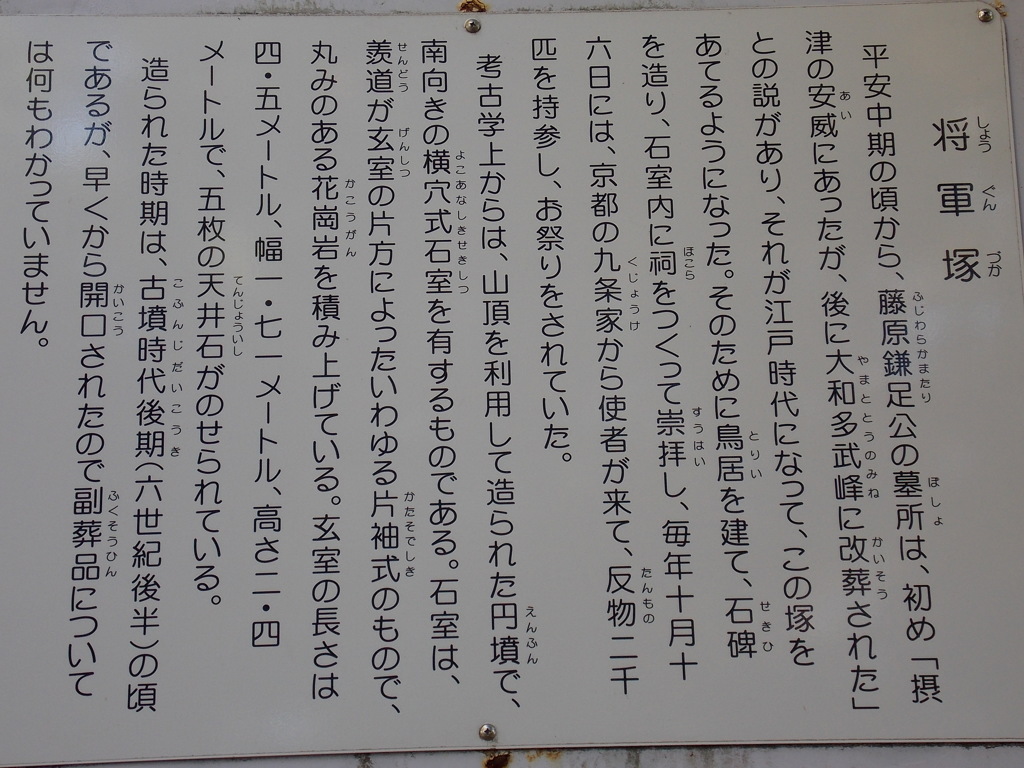 将軍塚
平安中期の頃から、藤原鎌足公の墓所は、初め「摂
津の安威にあったが、後に大和多武峰に改葬された」
との説があり、それが江戸時代になって、この塚を
あてるようになった。そのために鳥居を建て、石碑
を造り、石室内に祠をつくって崇拝し、毎年十月十
六日には、京都の九条家から使者が来て、反物二千
匹を持参し、お祭りをされていた。
考古学上からは、山頂を利用して造られた円墳で、
南向きの横穴式石室を有するものである。石室は、
羨道が玄室の片方によったいわゆる片袖式のもので、
丸みのある花崗岩を積み上げている。玄室の長さは
四・五メートル、幅一・七一メートル、高さ二・四
メートルで、五枚の天井石がのせられている。
造られた時期は、古墳時代後期(六世紀後半)の頃
であるが、早くから開口されたので副葬品について
は何もわかっていません。